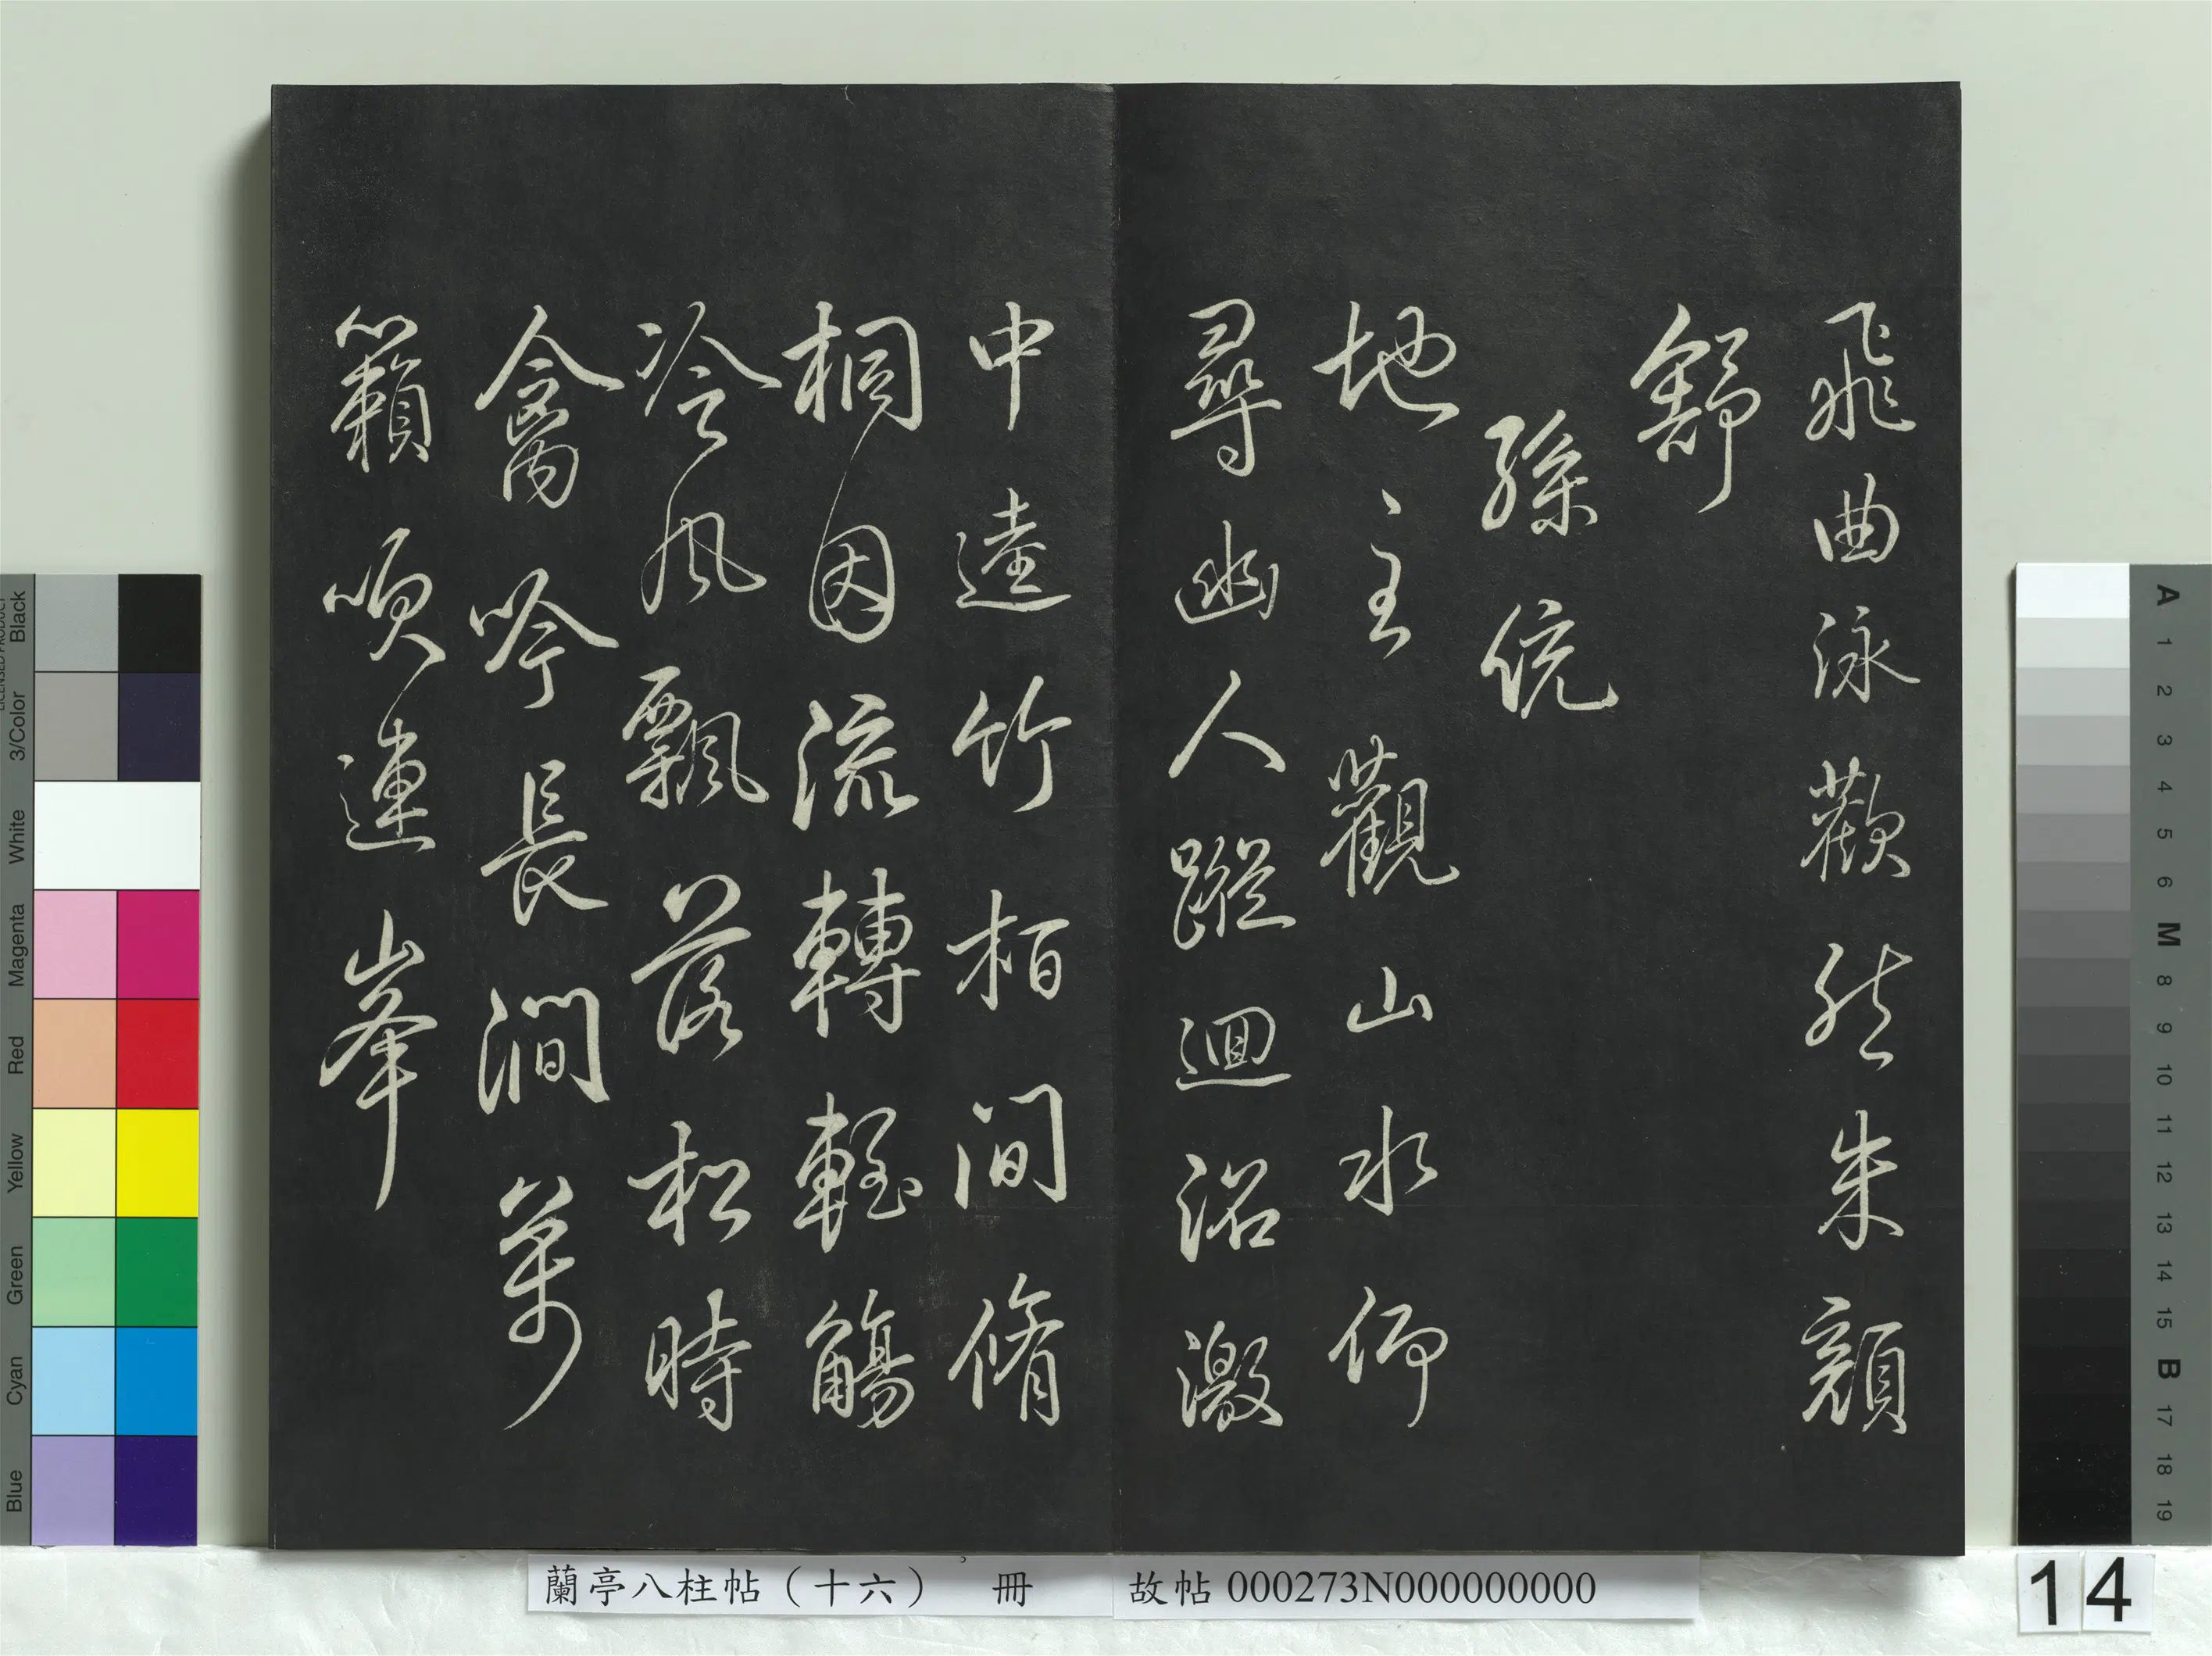 飛曲泳歡然朱顏
舒
孫統
地主觀山水仰
尋幽人蹤迴沼激
中逵竹柏間脩
桐因流轉輕觴
冷風飄落松時
禽吟長澗萬
籟吹連峯
蘭亭八柱帖（十六） 冊
故帖 000273N000000000
14
Black
3/Color
White
Magenta
Red
Yellow
Green
Cyan
Blue
A
1
2
3
4
5
6
M
8
9
10
11
12
13
14
15
B
17
18
19